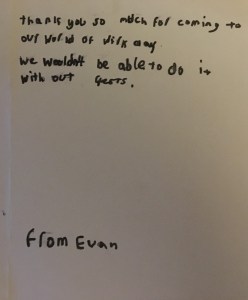 thank you so much for coming to
our world of work day
we wouldn't be able to do it
with out gests.
From Evan